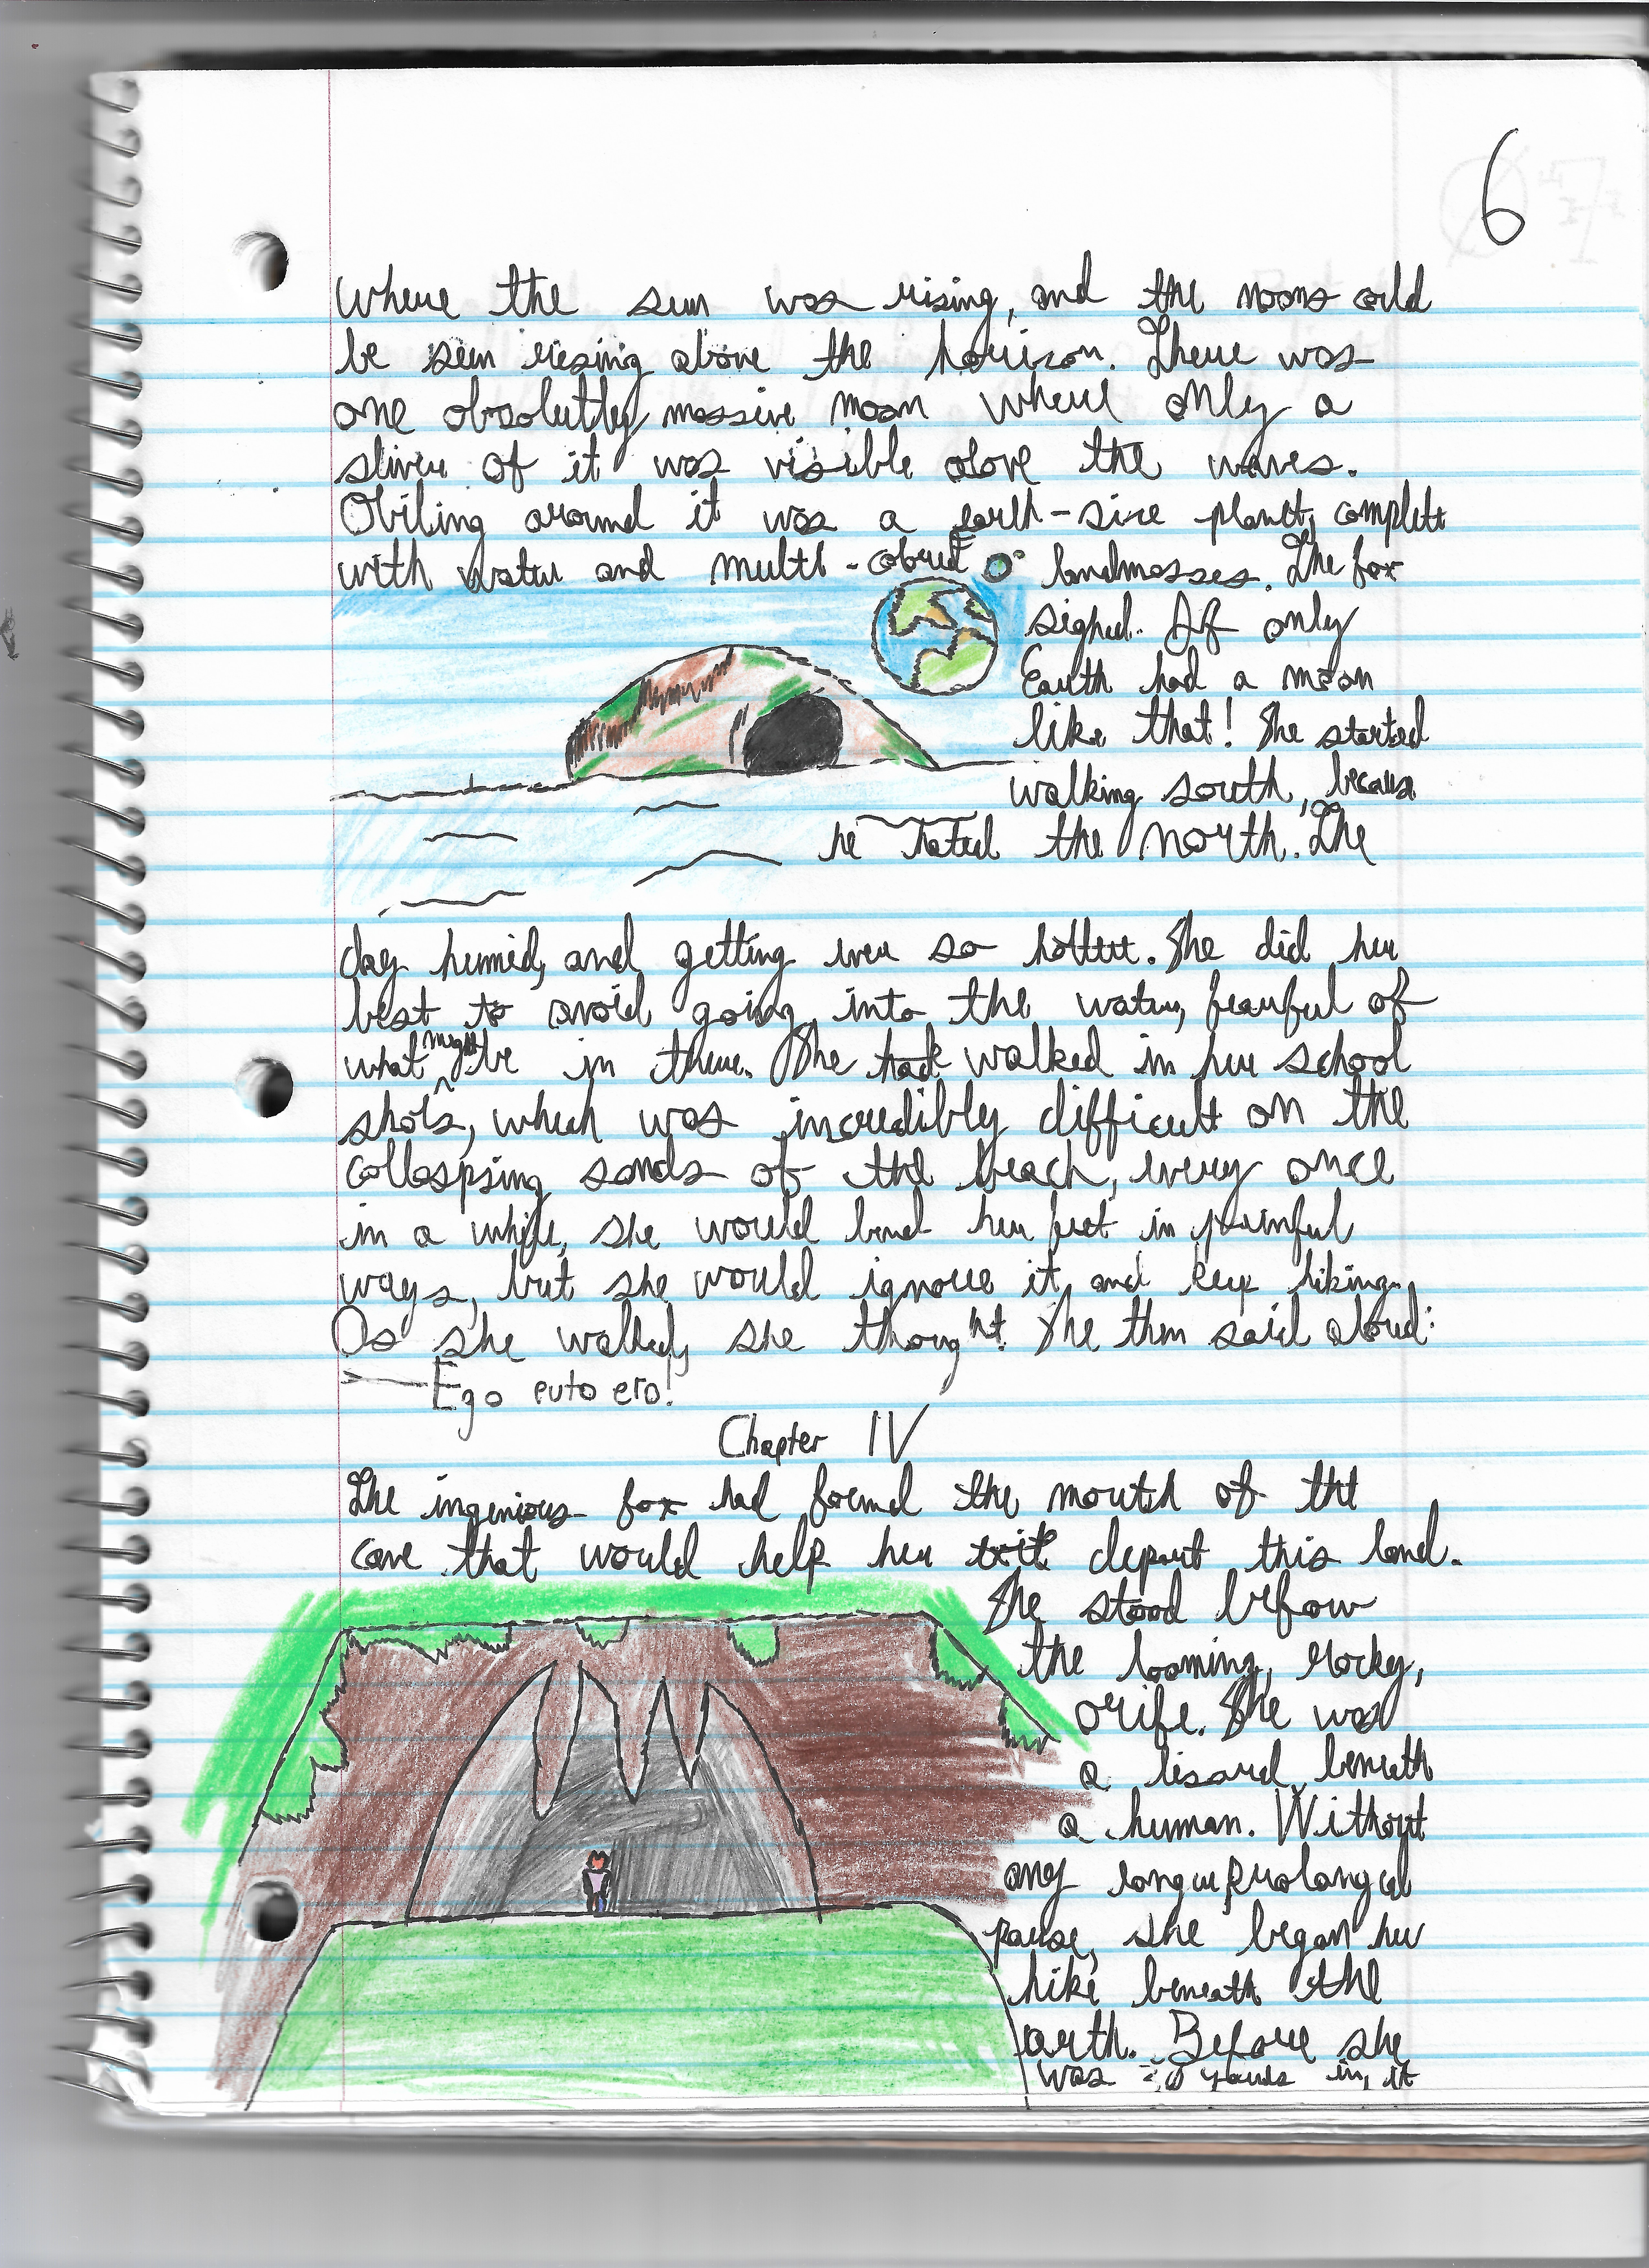 6
where the sun was rising, and the moons could
be seen rising above the horizon. There was
one absolutley massive moon where only a
sliver of it was visible above the waves.
Obiting around it was a earth-size planet, complete
with water and multi-colored landmasses. The fox
sighed. If only
Earth had a moon
like that! She started
walking south, because
he hated the north. The
day humid, and getting ever so hotter. She did her
best to avoid going into the water, fearful of
what might be in there. She had walked in her school
shoes, which was incredibly difficult on the
collaspsing sands of the beach, every once
in a while, she would bend her feet in painful
ways, but she would ignore it and keep hiking.
As she walked, she thought. She then said aloud:
—Ego puto ero!
Chapter IV
The ingenious fox had found the mouth of the
cave that would help her depart this land.
She stood before
the looming, rocky,
orife. She was
a lizard beneath
a human. Without
any longer prolonged
pause, she began her
hike beneath the
earth. Before she
was 20 yards in, it